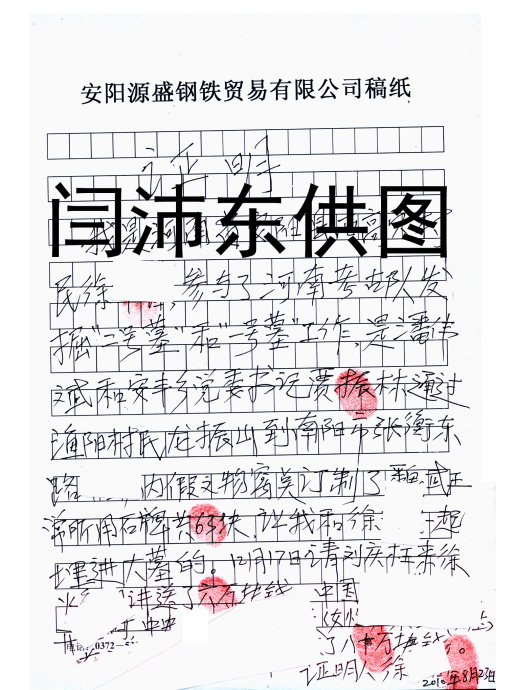 安阳源盛钢铁贸易有限公司稿纸
证明
闫沛东供图
民徐 ,参与了河南考古队发
掘"二号墓"和"一号墓"工作,是潘伟
斌和安丰乡党委书记贾振林通过
渔阳村民龙振山到南阳市张衡东
路 内假文物窝点订制了 魏武王
常所用石牌共63块,让我和徐 一起
埋进大墓的。12月17日请刘庆柱来徐
讲送了六万块钱 中国
了八十万块钱。
电话:0372—
证明人徐
2010年8月23日